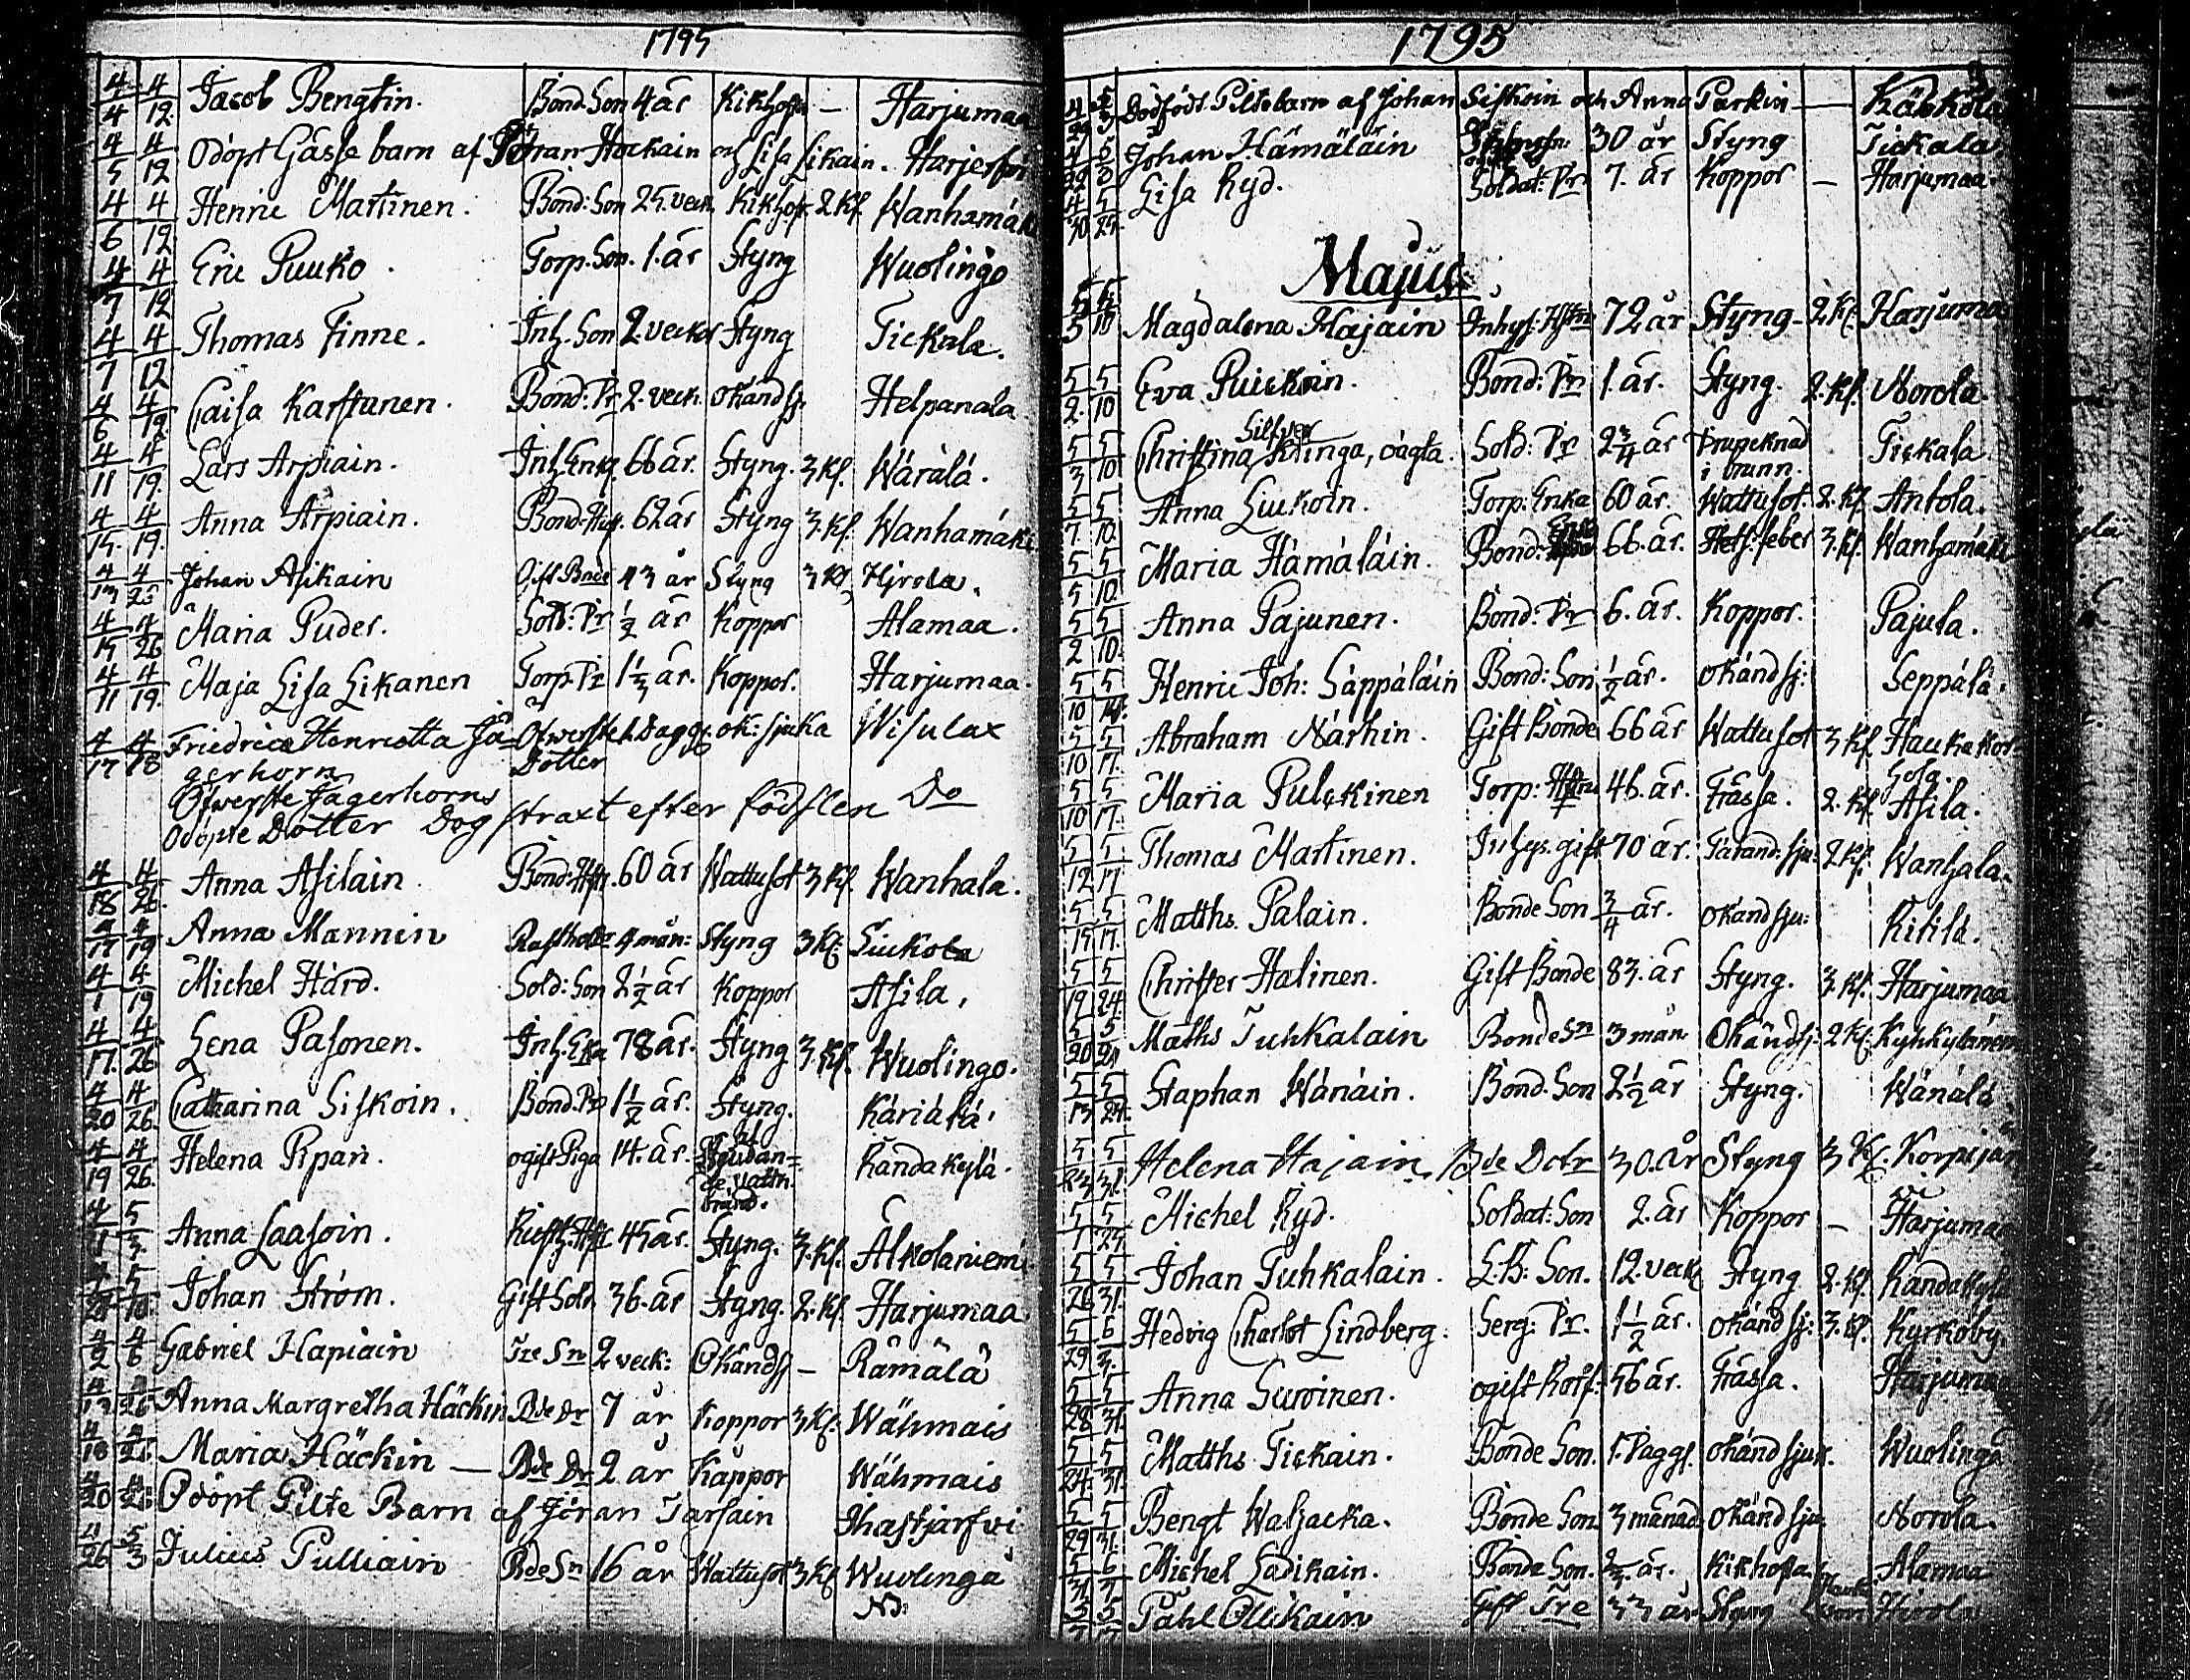 1795
4/4 4/12 Jacob Bengtin. Bond. Son 4. år Kikhosta — Harjumaa
4/5 4/12 Odöpt Gåsse barn af Jöran Hockain och Lisa Likain. Harjerfvi
4/6 4/12 Henric Martinen. Bond: Son 25. veck. Kikhost. 2 Kf. Wanhamäki
4/7 4/12 Eric Puuko. Torp. Son. 1. år Styng Wuolingo
4/7 4/12 Thomas Finne. Inh. Son 2. veckor Styng Tickala.
4/6 4/12 Caisa Karstunen. Bond: Pr 2. veck. okänd sj. Helpanala.
4/11 4/19. Lars Arpiain. Inh. Enkg. 66 år. Styng. 3 Kf. Wärälä.
4/15. 4/19. Anna Arpiain. Bond. Hust. 62 år Styng 3. Kf. Wanhamäki
4/13 4/25 Johan Asikain Gift Bnde 43 år Styng 3 Kf Hjrola.
4/15 4/26 Maria Puder. Sold: Pr ½ år Koppor Alamaa.
4/11 4/19. Maja Lisa Likanen Torp. Pr 1⅓ år. Koppor. Harjumaa.
4/17 4/18 Friedrica Henrietta Jä= Öfwerstel. Dagg. ok: sjuka Wisulax
gerhorn Dotter
Öfwerste Jägerhorns
Odöpte Dotter Dog straxt efter födslen Do
4/18 4/26. Anna Asilain. Bond: Hstr. 60 år Wattusot 3 Kf. Wanhala.
4/17 4/19 Anna Mannin Rusthålls 4 mån: Styng 3 Kf: Liukola
4/1 4/19 Michel Hård. Sold: Son 2½ år Koppor Asila.
4/17. 4/26 Lena Pasonen. Inh. Eka 78 år. Styng 3. Kf. Wuolingo.
4/20 4/26. Catharina Siskoin. Bond. Pr 1½ år. Styng. Käriälä.
4/19 4/26. Helena Pipari. ogift Piga 14. år. af Sjudan=
de vattn. bränd. Kandakylä.
4/1 5/3. Anna Laasoin. Rusth. Hstr 45 år. Styng. 3. Kf. Alkolaniemi
5/10 Johan Ström. Gift Sold. 36. år Styng. 2. Kf. Harjumaa
4/2 4/6 Gabriel Hapiain Tre Sn 2 veck: Okänds — Rämälä
4/13 4/26 Anna Margretha Häckin Bde Dr 7 år Koppor 3 Kf. Wähmais
4/18 4/25. Maria Häckin — Bde Dr 2 år Kåppor Wähmais
4/20 4/26 Odöpt Pilte Barn af Jöran Tarfain Ihastjärfvi
4/26 5/3 Julius Pulliain Bde Sn 16 år Wattusot 3 Kf Wuolinga
NB:
1795
4/29 5/3 Dödfödt Piltebarn af Johan Siskoin och Anna Parkin — Käckölä
4/29 5/3 Johan Hämäläin ogift 30 år Styng Tickala
4/30 5/25. Lisa Ryd. Soldat: Pr 7. år Koppor — Harjumaa.
Majus
5/5 5/10 Magdalena Hajain Inhys: Hstru 72 år Styng— 2 Kf. Harjumaa
5/2. 5/10 Eva Puickoin. Bond: Pr 1. år. Styng. 2. Kf. Norola.
5/3 5/10 Christina Silfver Klinga, oägta. Sold: Pr 2¾ år Drupcknad
i brunn. Tickala.
5/7 5/10. Anna Liukoin. Torp: Enka 60 år. Wattusot. 2. Kf. Antola.
5/5 5/10. Maria Hämäläin. Bond: Enka 66. år. Hets. feber 3. Kf. Wanhamäki
5/2 5/10. Anna Pajunen. Bond: Pr 6. år. Koppor. Pajula.
5/10 5/10. Henric Joh: Säppäläin Bond: Son ½ år. okänd sj: Seppälä.
5/10 5/17. Abraham Närhin. Gift Bonde 66 år Wattusot 3 Kf. Haukakor=
hola.
5/10 5/17. Maria Pulckinen Torp: Hstru 46. år. Frässa. 2. Kf. Asila.
5/12 5/17 Thomas Martinen. Inhys. gift 70 år. Tärand: sju: 2 Kf: Wanhala.
5/15 5/17. Matths. Palain. Bonde Son ¾ år. okänd sju: Kitilä.
5/19 5/24. Christer Halinen. Gift Bonde 83. år Styng. 3. Kf. Harjumaa
5/20 5/24 Maths Tuhkalain Bonde Sn 3 mån Okänds: 2 Kf: Kyhkylänem
5/13 5/24. Staphan Wänäin. Bond. Son 2½ år Styng. Wänälä
5/23 5/31. Helena Hajain. Bde Dotr 30. år Styng 3 Kf. Korpijär
5/1 5/25 Michel Ryd. Soldat: Son 2. år Koppor — Harjumaa
5/26 5/31. Johan Tuhkalain. L: B: Son. 12. veck Styng 2. Kf. Kandakylä
5/29 6/3. Hedvig Charlot Lindberg. Serg: Pr. 1½ år. okänd sj: 3. Kf. Kyrkoby.
5/28 5/31. Anna Suroinen. ogift 56 år. Frässa. Harjumaa
5/24. 5/31. Matths Tickain. Bonde Son. 1. Dagg. okänd sjuk. Wuolinga
5/29 5/31. Bengt Waljacka. Bonde Son. 3 månad. okänd sju. Norola.
5/31 6/7 Michel Ladikain. Bonde Son. år. Kikhosta. Alamaa
Pahl Ollikain Gift Tre 33 år Styng Hirola